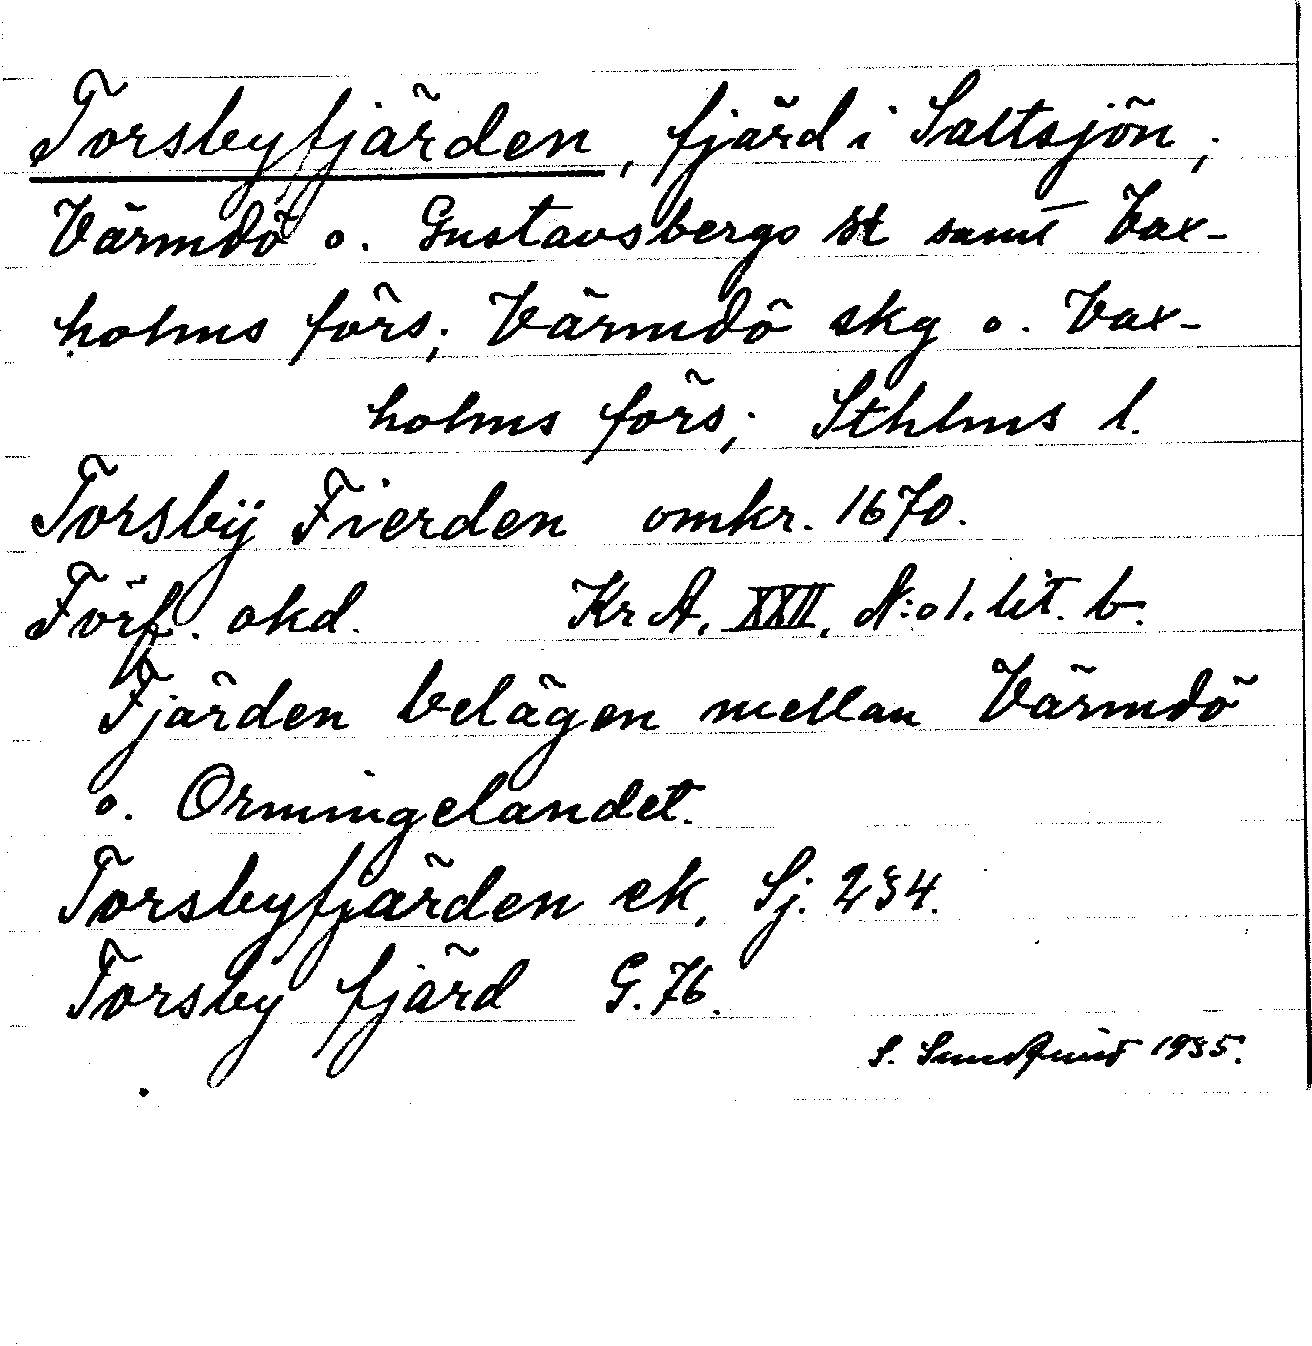 Torsbyfjärden, fjärd i Saltsjön;
Värmdö o. Gustavsbergs st samt Vax-
holms förs; Värmdö skg o. Vax-
holms förs; Sthlms l.
Torsbÿ Fierden omkr. 1670.
Förf. okd. Kr A. XXII, N:o 1. lit. b.
Fjärden belägen mellan Värmdö
o. Ormingelandet.
Torsbyfjärden ek, Sj. 234.
Torsby fjärd G. 76.
S. 1935.